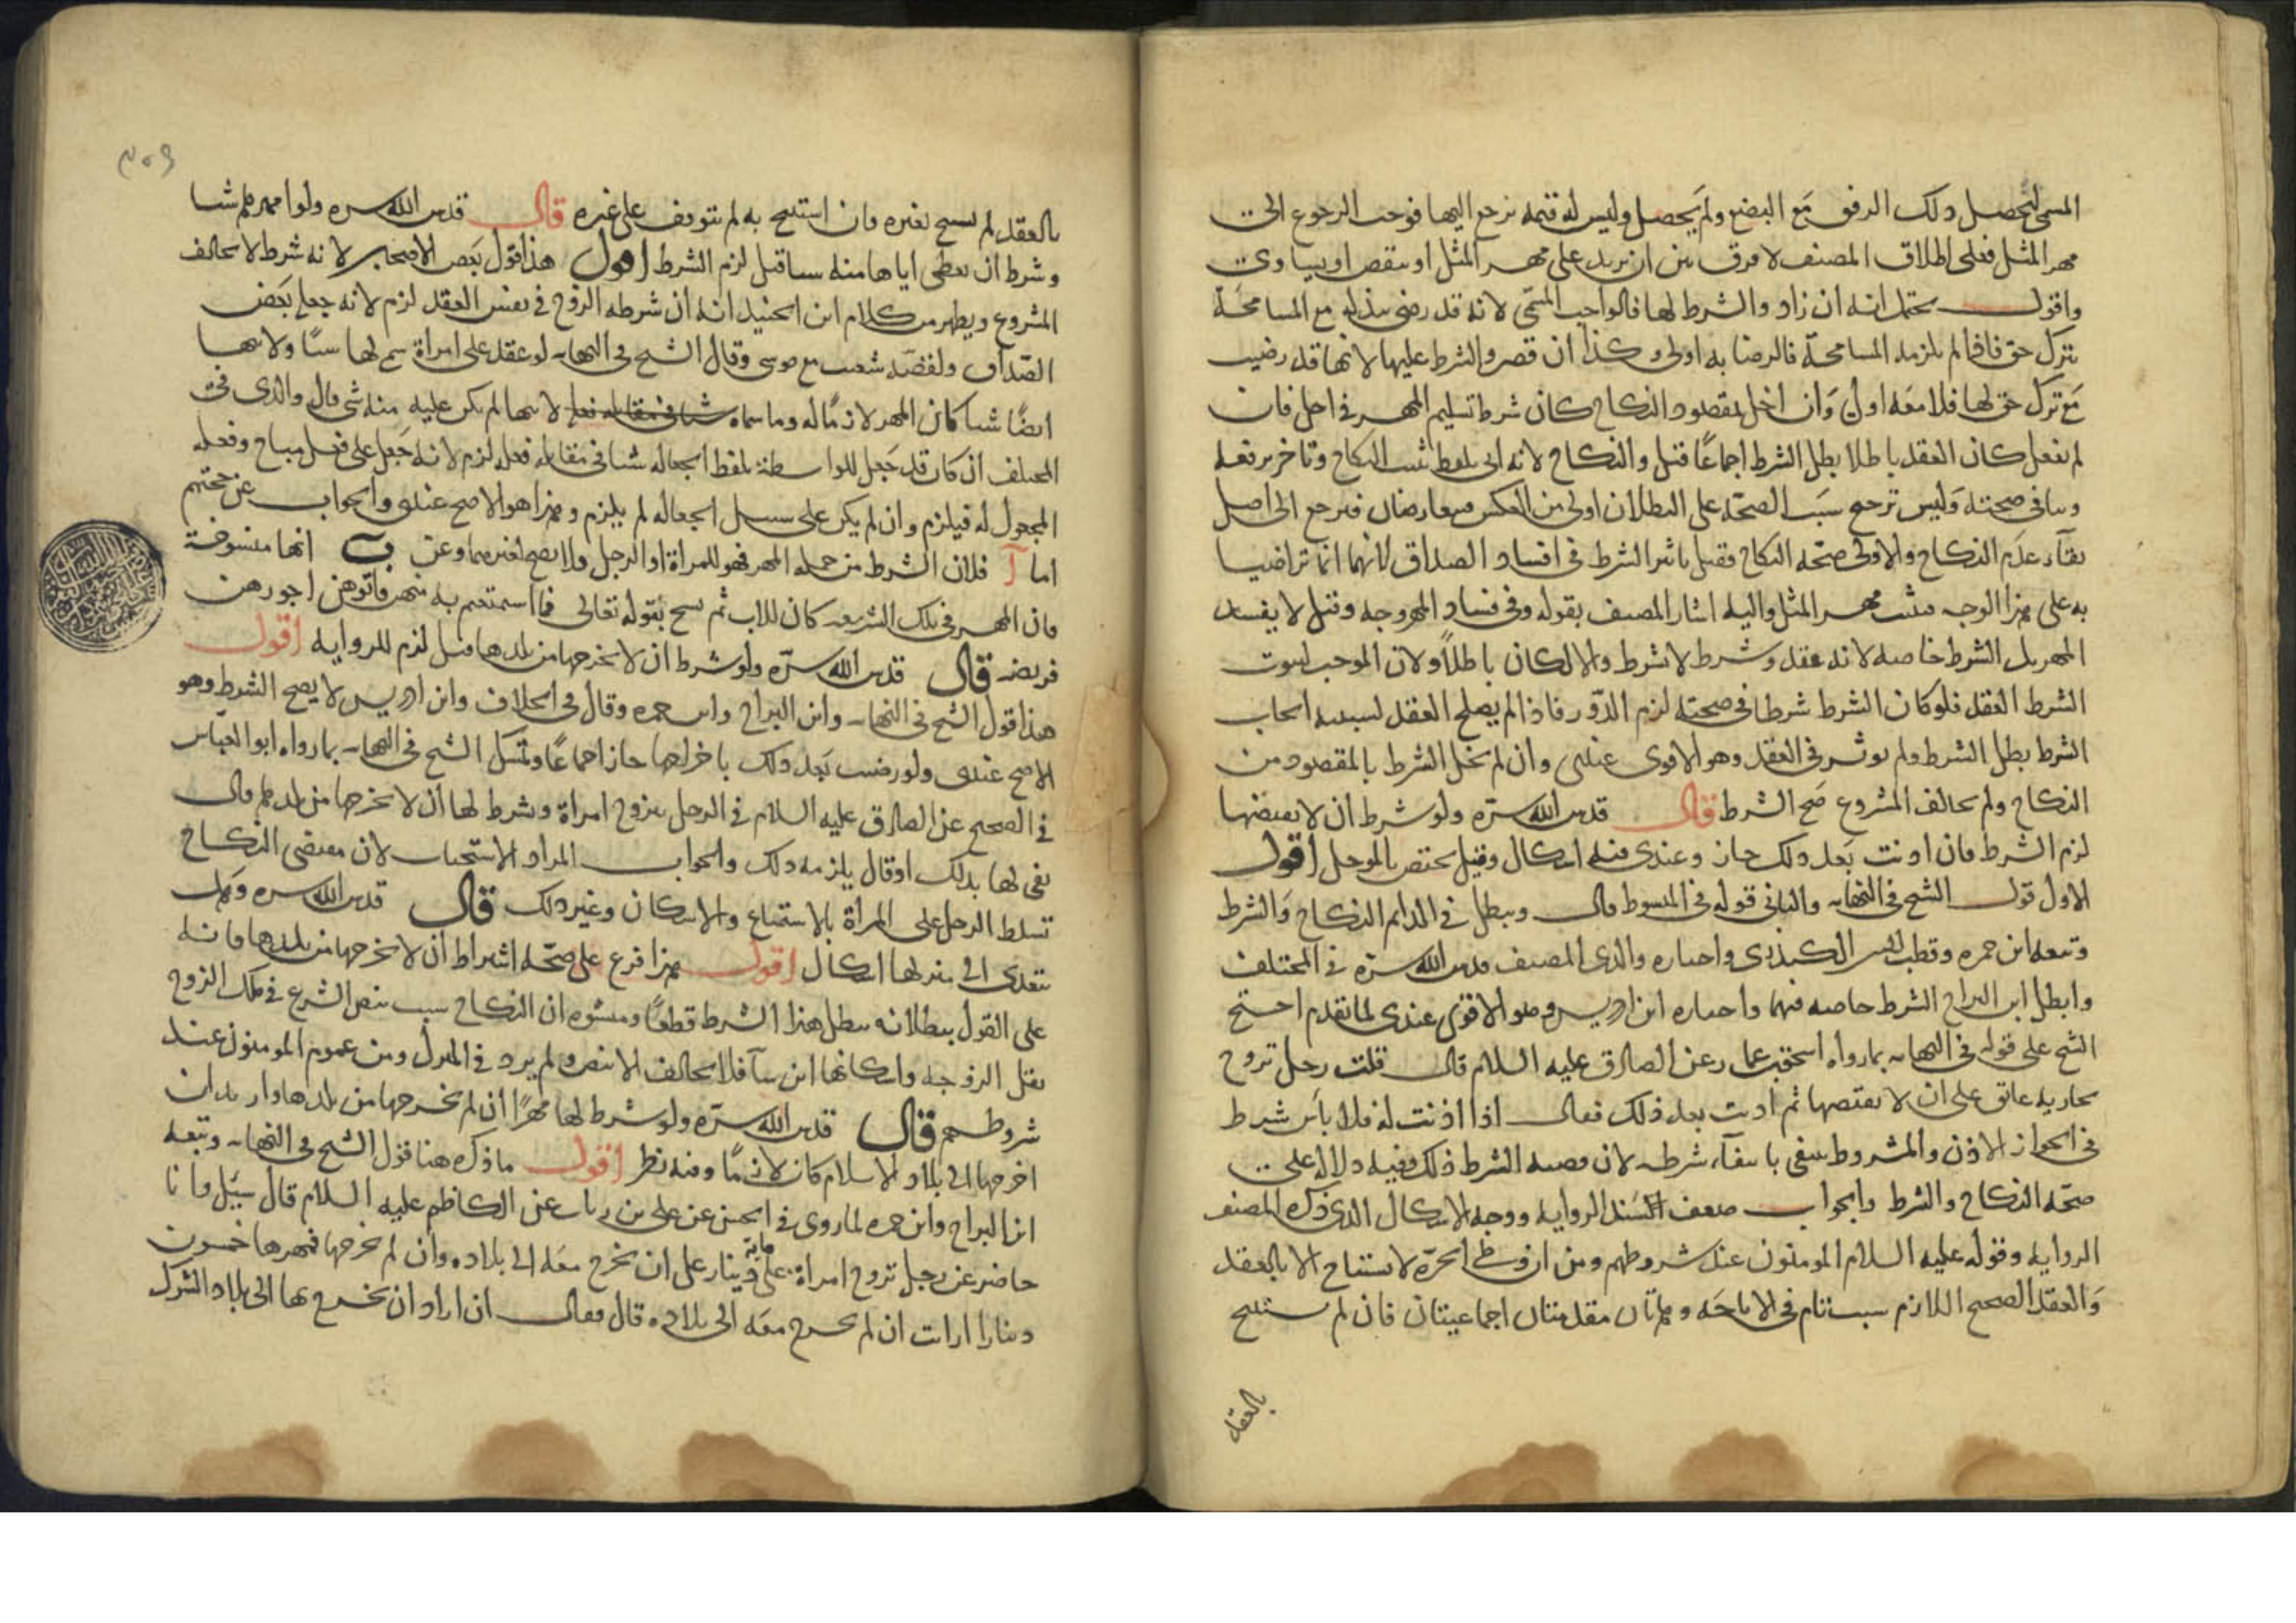 المسمى لتحصل ذلك الرفق مع البضع ولم يحصل وليس له قيمة نرجع اليها فوجب الرجوع الى
مهر المثل فعلى اطلاق المصنف لا فرق بين ان يزيد على مهر المثل او ينقص او يساوى
واقول يحتمل انه ان زاد والشرط لها فالواجب المسمى لانه قد رضى ببذله مع المسامحة
بترك حق فاذا لم يلزمه المسامحة فالرضا به اولى وكذا ان قصر والشرط عليها لانها قد رضيت
مع ترك حق لها فلا معه اولى وان اخل بمقصود النكاح كان شرط تسليم المهر فى اجل فان
لم يفعل كان العقد باطلا بطل الشرط اجماعا قيل والنكاح لانه اتى بلفظ يثبت النكاح وتاخر يرفعه
وينافى صحته وليس ترجح سبب الصحة على البطلان اولى من العكس فيعارضان فيرجع الى اصل
بقاء عدم النكاح والاولى صحة النكاح فقيل يأثر الشرط فى افساد الصداق لانهما انما تراضيا
به على هذا الوجه فيثبت مهر المثل واليه اشار المصنف بقوله وفى فساد المهر وجه وقيل لا يفسد
المهر بل الشرط خاصة لانه عقد وشرط لا بشرط والا لكان باطلا ولان الموجب لثبوت
الشرط العقد فلو كان الشرط شرطا فى صحته لزم الدور فاذا لم يصلح العقد لسببية ايجاب
الشرط بطل الشرط ولم يوثر فى العقد وهو الاقوى عندى وان لم يخل الشرط بالمقصود من
النكاح ولم يخالف المشروع صح الشرط قال قدس الله سره ولو شرط ان لا يفتضها
لزم الشرط فان اذنت بعد ذلك جاز وعندى فيه اشكال وقيل يختص بالموجل اقول
الاول قول الشيخ فى النهاية والثانى قوله فى المبسوط قال ويبطل فى الدايم النكاح والشرط
وتبعه ابن حمزه وقطب الدين الكيذرى واختاره والدى المصنف قدس الله سره فى المختلف
وابطل ابن البراج الشرط خاصة فيهما واختاره ابن ادريس وهو الاقوى عندى لما تقدم احتج
الشيخ على قوله فى النهاية بما رواه اسحق بن عمار عن الصادق عليه السلام قال قلت رجل تزوج
بجارية عاتق على ان لا يفتضها ثم اذنت بعد ذلك فقال اذا اذنت له فلا بأس شرط
فى الجواز الاذن والمشروط ينتفى بانتفاء شرطه لان قضية الشرط ذلك وفيه دلالة على
صحة النكاح والشرط والجواب ضعف السند الرواية ووجه الاشكال الذى ذكره المصنف
الرواية وقوله عليه السلام المومنون عند شروطهم ومن ان وطى الحرة لا يستباح الا بالعقد
والعقد الصحيح اللازم سبب تام فى الاباحة وهاتان مقدمتان اجماعيتان فان لم يستبح
بالعقد
بالعقد لم يستبح بغيره وان استبيح به لم يتوقف على غيره قال قدس الله سره ولو امهرها شيا
وشرط ان يعطى اباها منه شيا قيل لزم الشرط اقول هذا قول بعض الاصحاب لانه شرط لا يخالف
المشروع ويظهر من كلام ابن الجنيد انه ان شرطه الزوج فى نفس العقد لزم لانه جعله بعض
الصداق ولقضية شعيب مع موسى وقال الشيخ فى النهاية لو عقد على امراة سمى لها شيا ولابيها
ايضا شيا كان المهر لازما له وما سماه لابيها لم يكن عليه منه شى قال والدى فى
المختلف ان كان قد جعل للواسطة بلفظ الجعالة شيا فى مقابلة فعله لزم لانه جعل على فعل مباح وفعله
المجعول له فيلزم وان لم يكن على سبيل الجعالة لم يلزم وهذا هو الاصح عندى والجواب عن حجتهم
اما آ فلان الشرط من جملة المهر فهو للمراة او الرجل ولا يصح لغيرهما وعن ب انها منسوخة
فان المهر فى تلك الشريعة كان للاب ثم نسخ بقوله تعالى فما استمتعتم به منهن فآتوهن اجورهن
فريضة قال قدس الله سره ولو شرط ان لا يخرجها من بلدها قيل لزم للرواية اقول
هذا قول الشيخ فى النهاية وابن البراج وابن حمزه وقال فى الخلاف وابن ادريس لا يصح الشرط وهو
الاصح عندى ولو رضيت بعد ذلك باخراجها جاز اجماعا وتمسك الشيخ فى النهاية بما رواه ابو العباس
فى الصحيح عن الصادق عليه السلام فى الرجل يتزوج امراة وشرط لها ان لا يخرجها من بلدها قال
يفى لها بذلك او قال يلزمه ذلك والجواب المراد الاستحباب لان مقتضى النكاح
تسلط الرجل على المراة بالاستمتاع والاسكان وغير ذلك قال قدس الله سره وهل
يتعدى الى منزلها اشكال اقول هذا فرع على صحة اشتراط ان لا يخرجها من بلدها فانه
على القول ببطلانه يبطل هذا الشرط قطعا ومنشوه ان النكاح سبب بنص الشرع فى ملك الزوج
نقل الزوجة واسكانها اين شآ فلا يخالف الا بنص ولم يرد فى المنزل ومن عموم المومنون عند
شروطهم قال قدس الله سره ولو شرط لها مهرا ان لم يخرجها من بلدها وازيد ان
اخرجها الى بلاد الاسلام كان لازما وفيه نظر اقول ما ذكره هنا قول الشيخ فى النهاية وتبعه
ابن البراج وابن حمزه لما روى فى الحسن عن على بن رياب عن الكاظم عليه السلام قال سيل وانا
حاضر عن رجل تزوج امراة على ماية دينار على ان تخرج معه الى بلاده وان لم تخرج فمهرها خمسون
دينارا ارايت ان لم تخرج معه الى بلاده قال فقال ان اراد ان يخرج بها الى بلاد الشرك